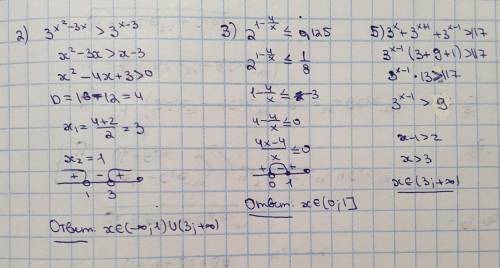 2) 3^(x²-3x) > 3^(x-3)
x²-3x > x-3
x²-4x+3>0
D=16-12=4
x₁=(4+2)/2=3
x₂=1
+ - +
1 3
Ответ: x∈(-∞;1)∪(3;+∞)
3) 2^(1-4/x) ≤ 0,125
2^(1-4/x) ≤ 1/8
1-4/x ≤ -3
4-4/x ≤0
(4x-4)/x ≤0
+ - +
0 1
Ответ: x∈(0;1]
5) 3^x+3^(x+1)+3^(x-1)>117
3^(x-1)(3+9+1)>117
3^(x-1)·13>117
3^(x-1)>9
x-1>2
x>3
x∈(3;+∞)